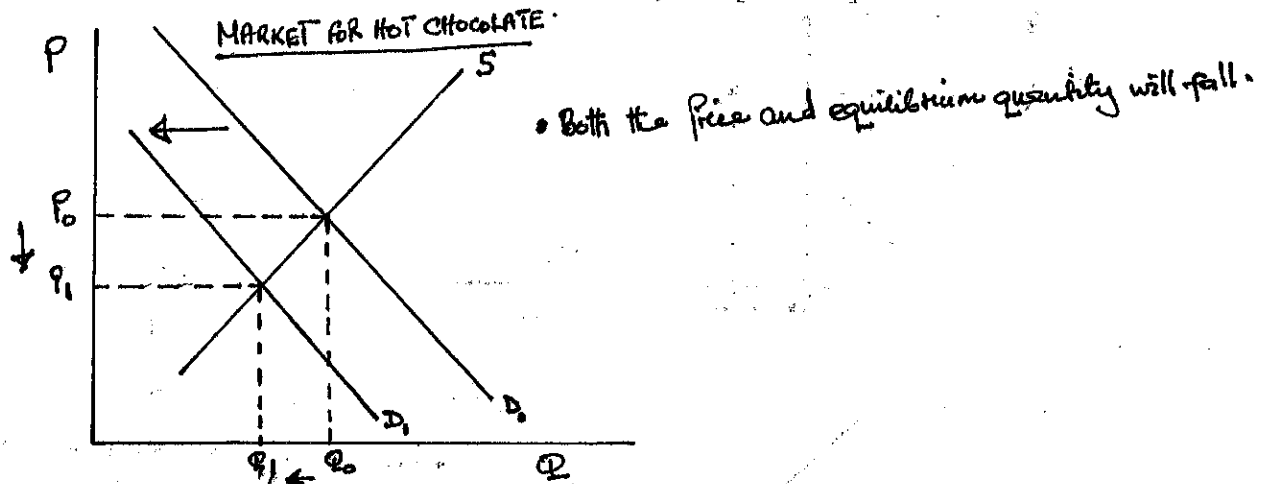 MARKET FOR HOT CHOCOLATE.
P
S
• Both the Price and equilibrium quantity will fall.
P₀
P₁
D₁
D₀
Q₁
Q₀
Q